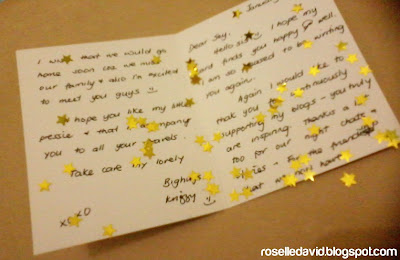 I that we would go
home soon coz we miss
our family & also i'm excited
to meet you guys
hope you like my little
pressie & that company
you to all your travels.
Take care my lovely
xoxo
Dear Jay,
Hello sis! I hope my
card finds you happy & well.
I am so to be writing
you again.
Again I would like to
thank you continuously
supporting my blogs - you truly
are inspiring. Thanks a
too for our night chats &
for the friendship
that we now have
Bighugs
roselledavid.blogspot.com